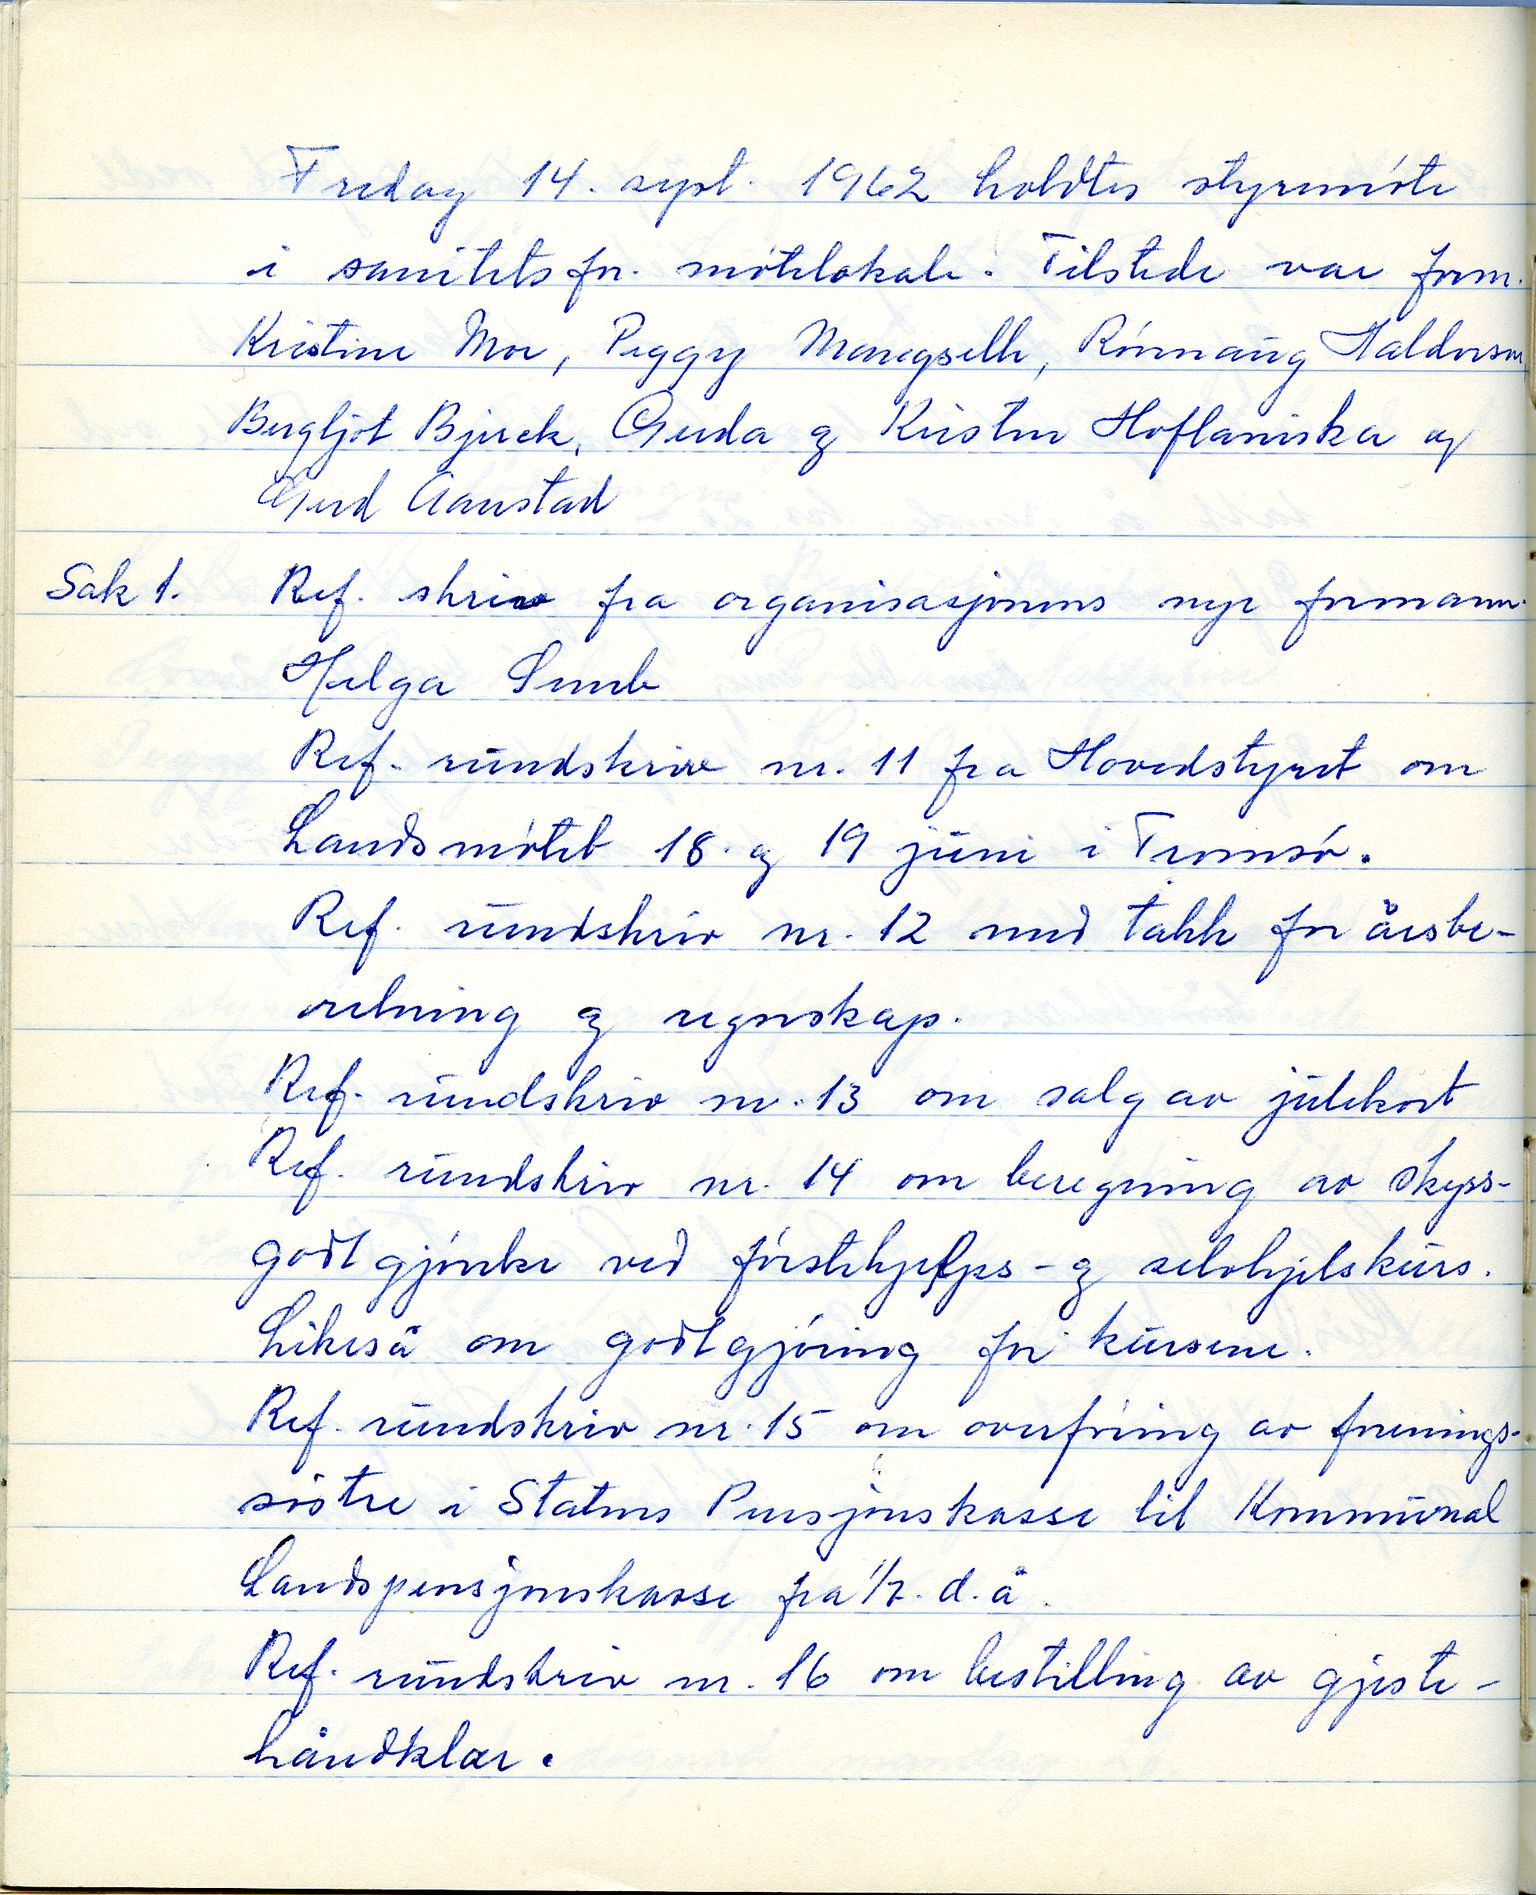 Fredag 14. sept. 1962 holdtes styremöte
i sanitetsfor. mötelokale. Tilstede var form.
Kristine Moe, Peggy Monegselle, Rönnaug Haldorsen
Bergljot Bjerck, Gerda og Kristen Hoflaniska og
Gerd Aanstad
Sak 1. Ref. skriv fra organisasjonens nye formann
Helga Sunb
Ref. rundskriv nr. 11 fra Hovedstyret om
Landsmötet 18. og 19 juni i Tromsö.
Ref. rundskriv nr. 12 med takk for årsbe-
retning og regnskap.
Ref. rundskriv nr. 13 om salg av julekort
Ref. rundskriv nr. 14 om beregning av skyss-
godtgjörelse ved förstehjelps- og selvhjelpskurs.
Likeså om godtgjöring for kursene.
Ref. rundskriv nr. 15 om overföring av forenings-
söstre i Statens Pensjonskasse til Kommunal
Landspensjonskasse fra 1/7. d.å.
Ref. rundskriv nr. 16 om bestilling av gjeste-
håndklær.